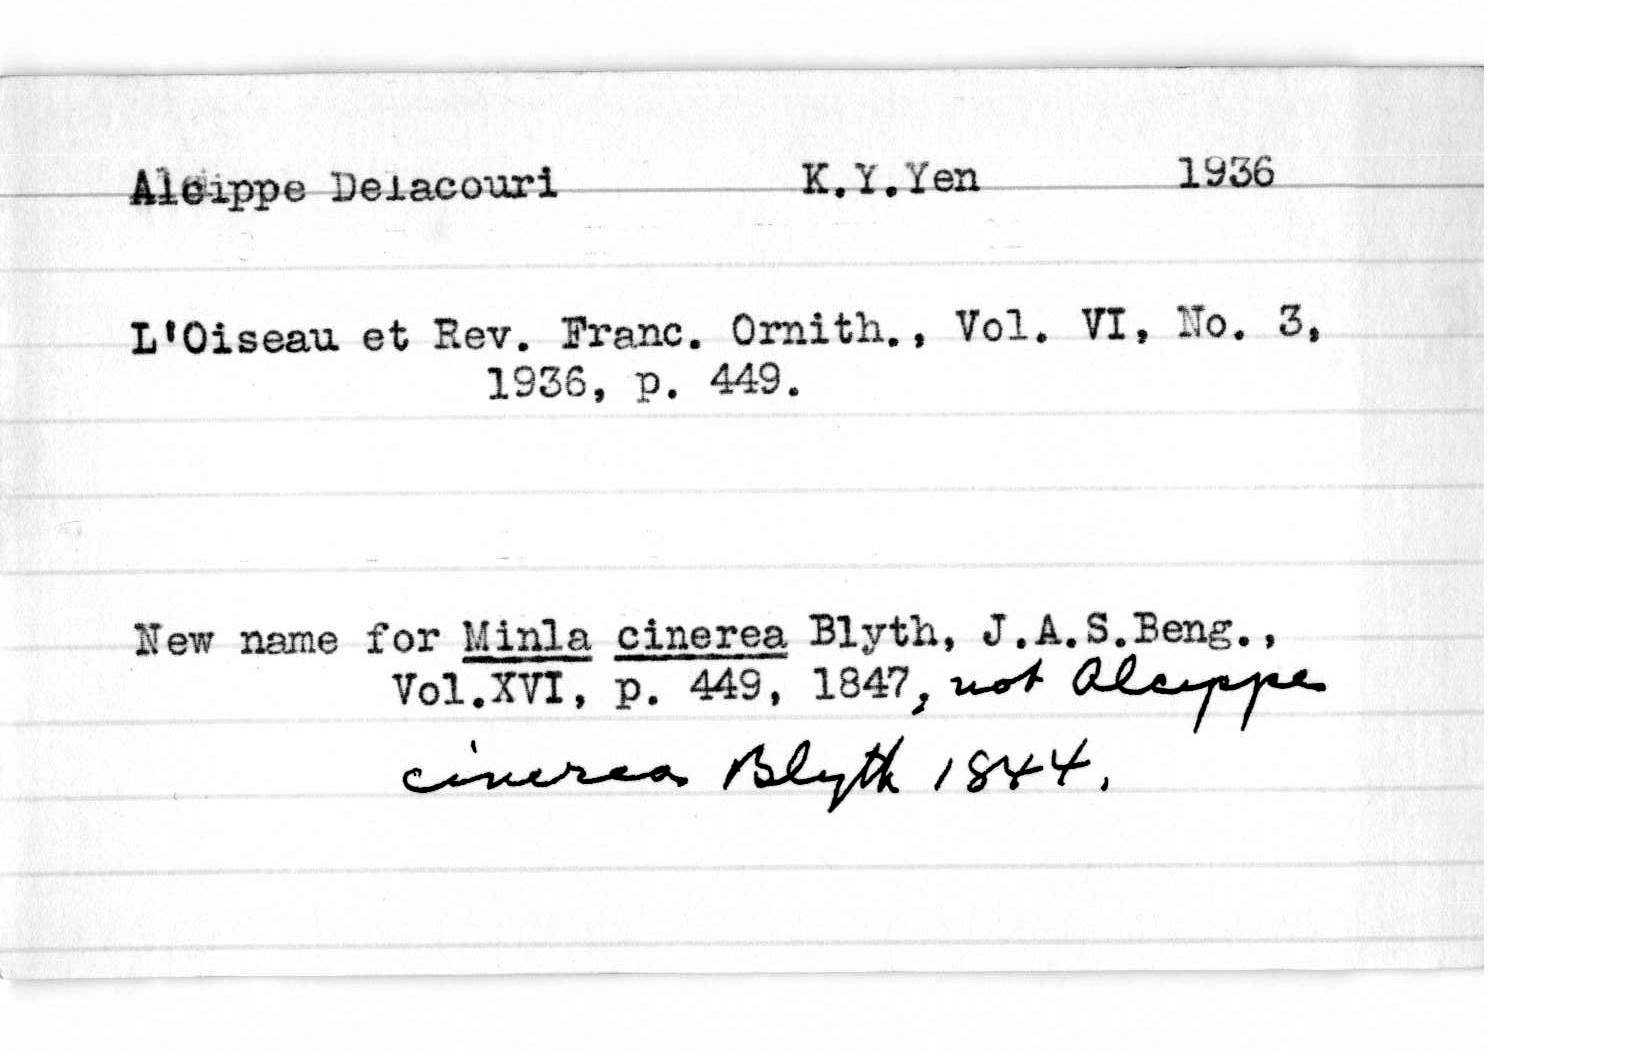 Alcippe Delacouri K.Y.Yen 1936
L'Oiseau et Rev. Franc. Ornith., Vol. VI, No. 3,
1936, p. 449.
New name for Minla cinerea Blyth, J.A.S.Beng.,
Vol.XVI, p. 449, 1847, not Alcippe
cinerea Blyth 1844.